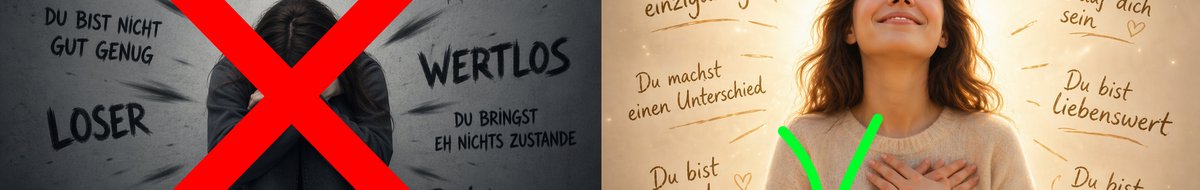 DU BIST NICHT
GUT GENUG
LOSER
WERTLOS
DU BRINGST
EH NICHTS ZUSTANDE
Du machst
einen Unterschied
auf dich
sein
Du bist
liebenswert
Du bist
Du bist